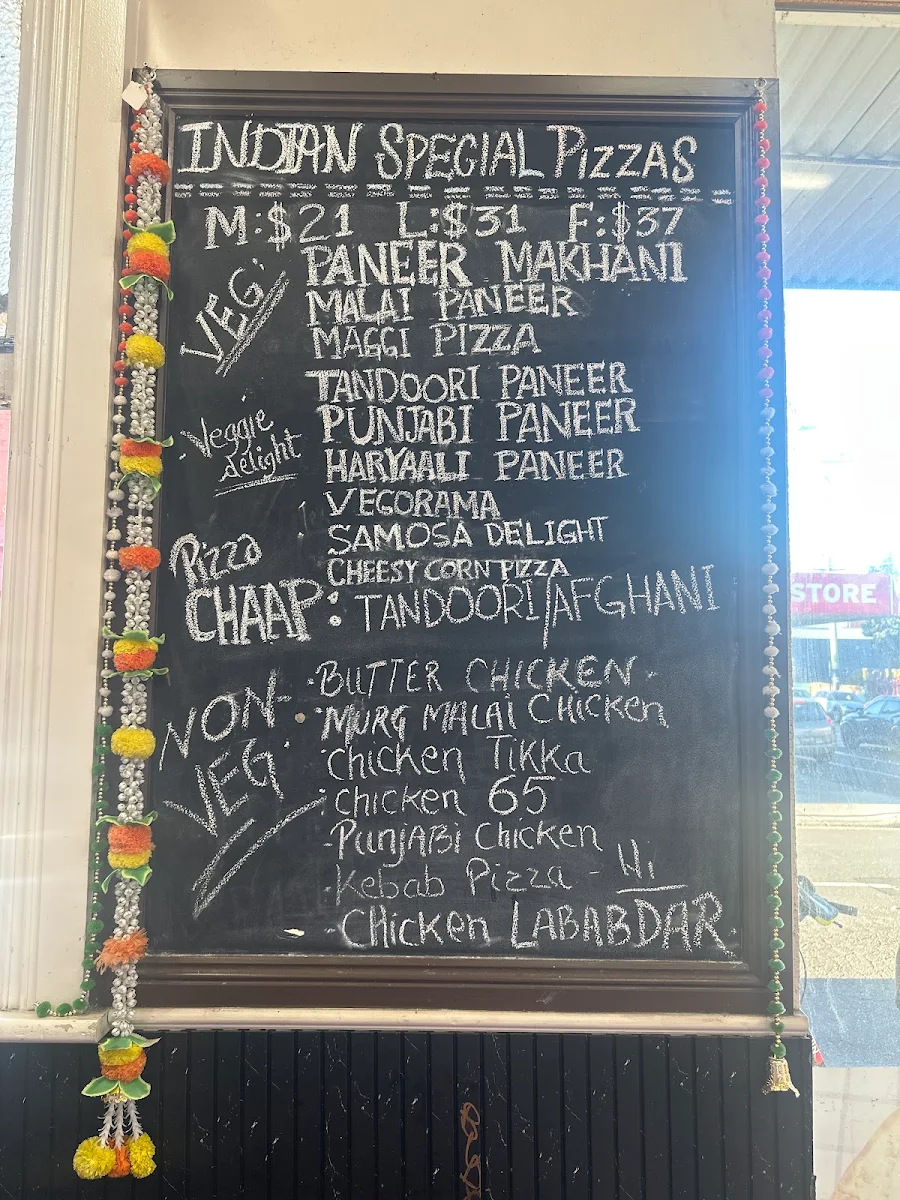 INDIAN SPECIAL PIZZAS
M:$21 L:$31 F:$37
VEG:
PANEER MAKHANI
MALAI PANEER
MAGGI PIZZA
TANDOORI PANEER
PUNJABI PANEER
HARYAALI PANEER
VEGORAMA
SAMOSA DELIGHT
CHEESY CORN PIZZA
Veggie
delight
Pizza
CHAAP: TANDOORI/AFGHANI
NON-
VEG:
BUTTER CHICKEN
MURG MALAI Chicken
Chicken Tikka
Chicken 65
Punjabi Chicken
Kebab Pizza -
Chicken LABABDAR
STORE